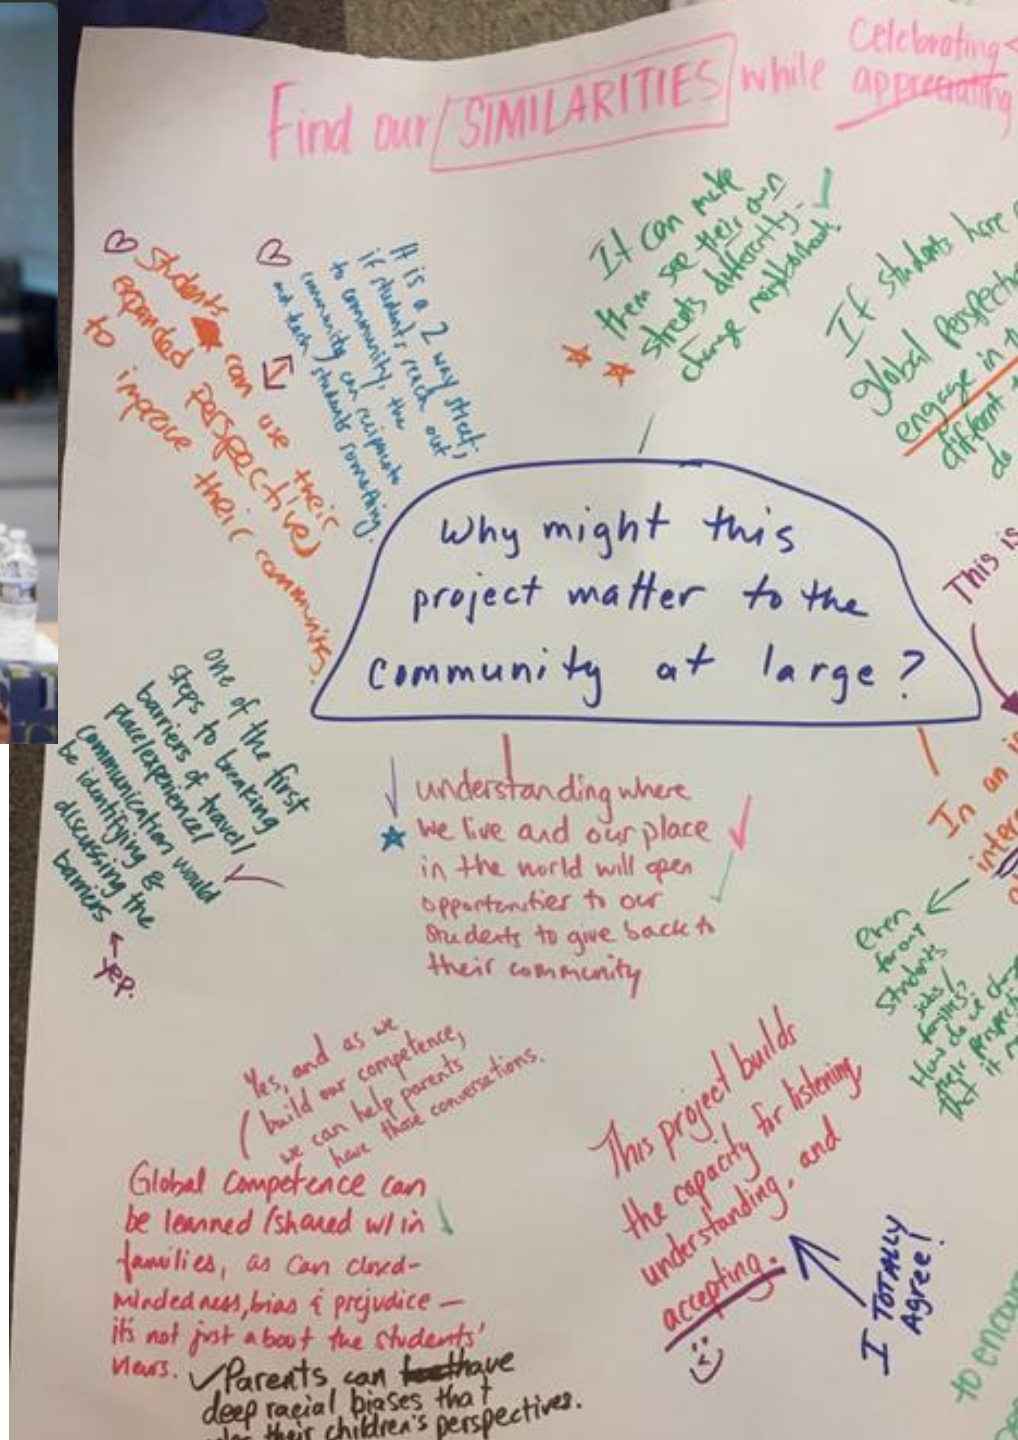 Find our SIMILARITIES while Celebrating
appreciating
Students can use their
expanded perspective(s)
to improve their communities.
It is a 2 way street;
if students reach out
to community, the
community can reciprocate
and teach students something.
It can make
them see their own
streets differently.
change neighborhood!
If students have
global perspective
engage in
different
do
Why might this
project matter to the
community at large?
This is
one of the first
steps to breaking
barriers of travel/
place/experience/
communication would
be identifying &
discussing the
barriers
yep.
understanding where
we live and our place
in the world will open
opportunities to our
students to give back to
their community
In an
Even
for our
students
jobs/
families?
How do we
their
that it
Yes, and as we
build our competence,
we can help parents
have those conversations.
Global Competence can
be learned/shared w/in
families, as can closed-
mindedness, bias & prejudice -
it's not just about the students'
views.
Parents can have
deep racial biases that
their children's perspectives.
This project builds
the capacity for listening,
understanding, and
accepting.
I TOTALLY
Agree!